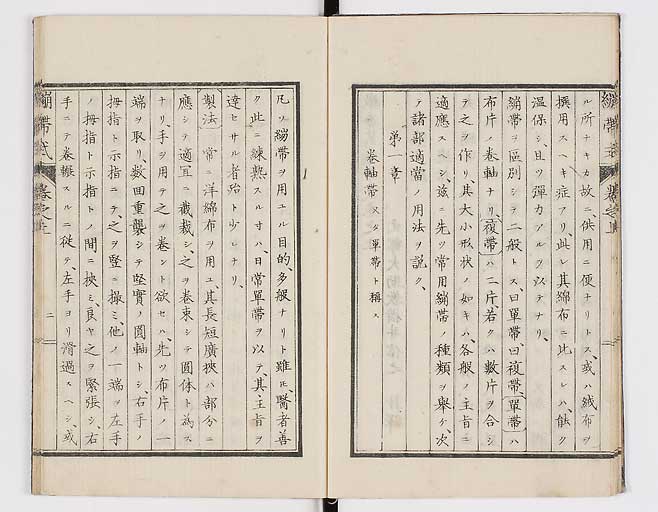 ル所ナキカ故ニ、供用ニ便ナリトス、或ハ絨布ヲ
撰用スヘキ症アリ、此レ其綿布ニ此スレハ、能ク
温保シ、且ツ彈力アルヲ以テナリ、
繃帶ヲ區別シテ二般トス、曰單帶、曰複帶、單帶ハ
布片ノ卷軸ナリ、複帶ハ二片、若クハ數片ヲ合シ
テ之ヲ作リ、其大小形狀ノ如キハ、各般ノ主旨ニ
適應スヘシ、玆ニ先ツ常用繃帶ノ種類ヲ擧ケ、次
テ諸部適當ノ用法ヲ說ク、
第一章
卷軸帶 又タ單帶ト稱ス
凡ソ繃帶ヲ用ユル目的、多般ナリト雖𪜈、醫者善
ク此ニ練熟スル寸ハ、日常單帶ヲ以テ、其主旨ヲ
達セサル者殆ト少シナリ、
製法 常ニ洋綿布ヲ用ユ、其長短廣挾ハ部分ニ
應シテ適宜ニ截裁シ、之ヲ卷束シテ圓体ト為ス
ナリ、手ヲ用テ之ヲ卷ント欲セハ、先ツ布片ノ一
端ヲ取リ、數回重襲シテ堅實ノ圓軸トシ、右手ノ
拇指ト示指ニテ、之ヲ竪ニ撮ミ、他ノ一端ヲ左手
ノ拇指ト示指トノ間ニ挾ミ、良ヤ之ヲ緊張シ、右
手ニテ卷振スルニ從テ、左手ヨリ滑過スヘシ、或
繃帶式 卷之上
二